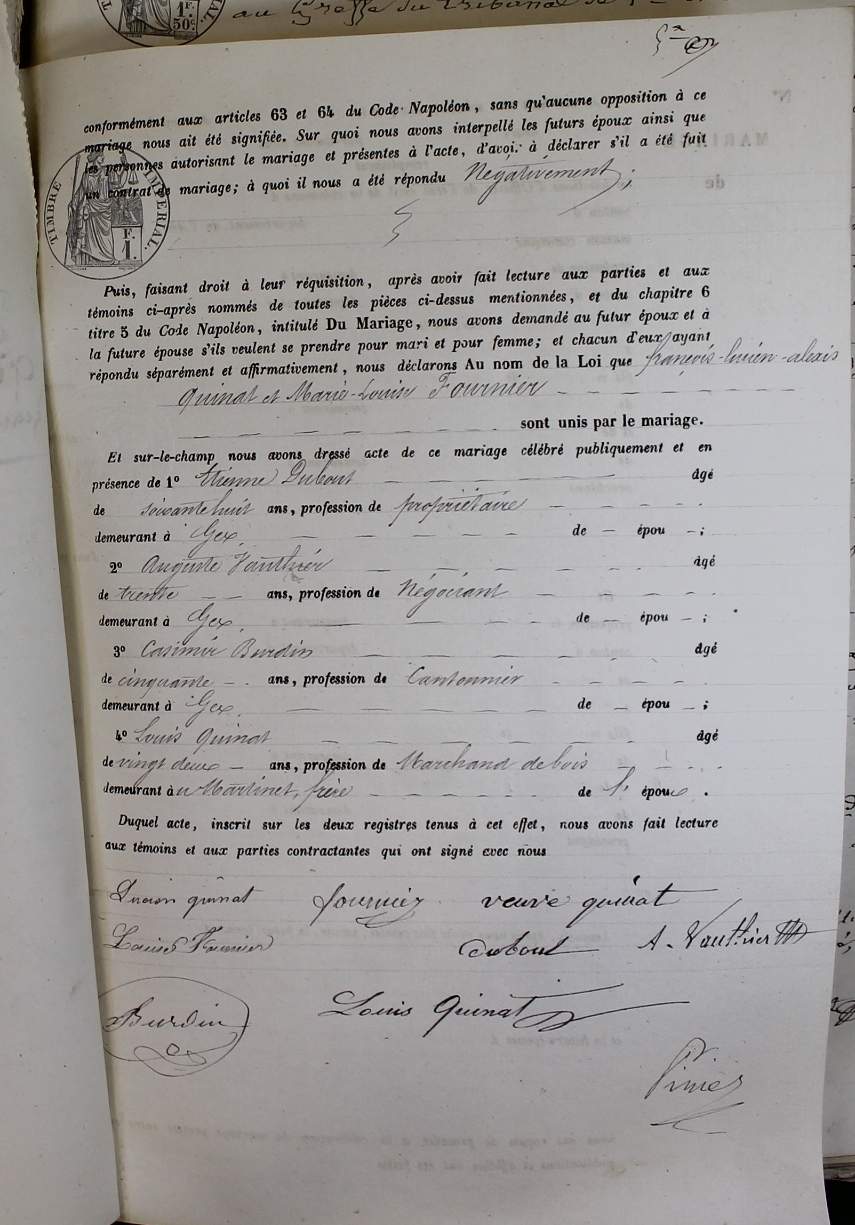 1F.
50c
au Greffe du tribunal de
conformément aux articles 63 et 64 du Code Napoléon, sans qu'aucune opposition à ce
mariage nous ait été signifiée. Sur quoi nous avons interpellé les futurs époux ainsi que
les personnes autorisant le mariage et présentes à l'acte, d'avoir à déclarer s'il a été fait
un contrat de mariage; à quoi il nous a été répondu Négativement;
TIMBRE IMPERIAL.
F.
1.
Puis, faisant droit à leur réquisition, après avoir fait lecture aux parties et aux
témoins ci-après nommés de toutes les pièces ci-dessus mentionnées, et du chapitre 6
titre 5 du Code Napoléon, intitulé Du Mariage, nous avons demandé au futur époux et à
la future épouse s'ils veulent se prendre pour mari et pour femme; et chacun d'eux ayant
répondu séparément et affirmativement, nous déclarons Au nom de la Loi que françois-lucien-alexis
Quinat et Marie-Louise Fournier
sont unis par le mariage.
Et sur-le-champ nous avons dressé acte de ce mariage célébré publiquement et en
présence de 1° Etienne Dubout âgé
de soixante huit ans, profession de propriétaire
demeurant à Gex, de — épou —;
2° Auguste Vauthier âgé
de trente ans, profession de Négociant
demeurant à Gex, de — épou —;
3° Casimir Burdin âgé
de cinquante ans, profession de Cantonnier
demeurant à Gex, de — épou —;
4° Louis Quinat âgé
de vingt deux ans, profession de Marchand de bois
demeurant à au Martinet, frère de l' époux.
Duquel acte, inscrit sur les deux registres tenus à cet effet, nous avons fait lecture
aux témoins et aux parties contractantes qui ont signé avec nous
Lucien quinat fournier veuve quinat
Louise Fournier Dubout A. Vauthier
Burdin Louis Quinat